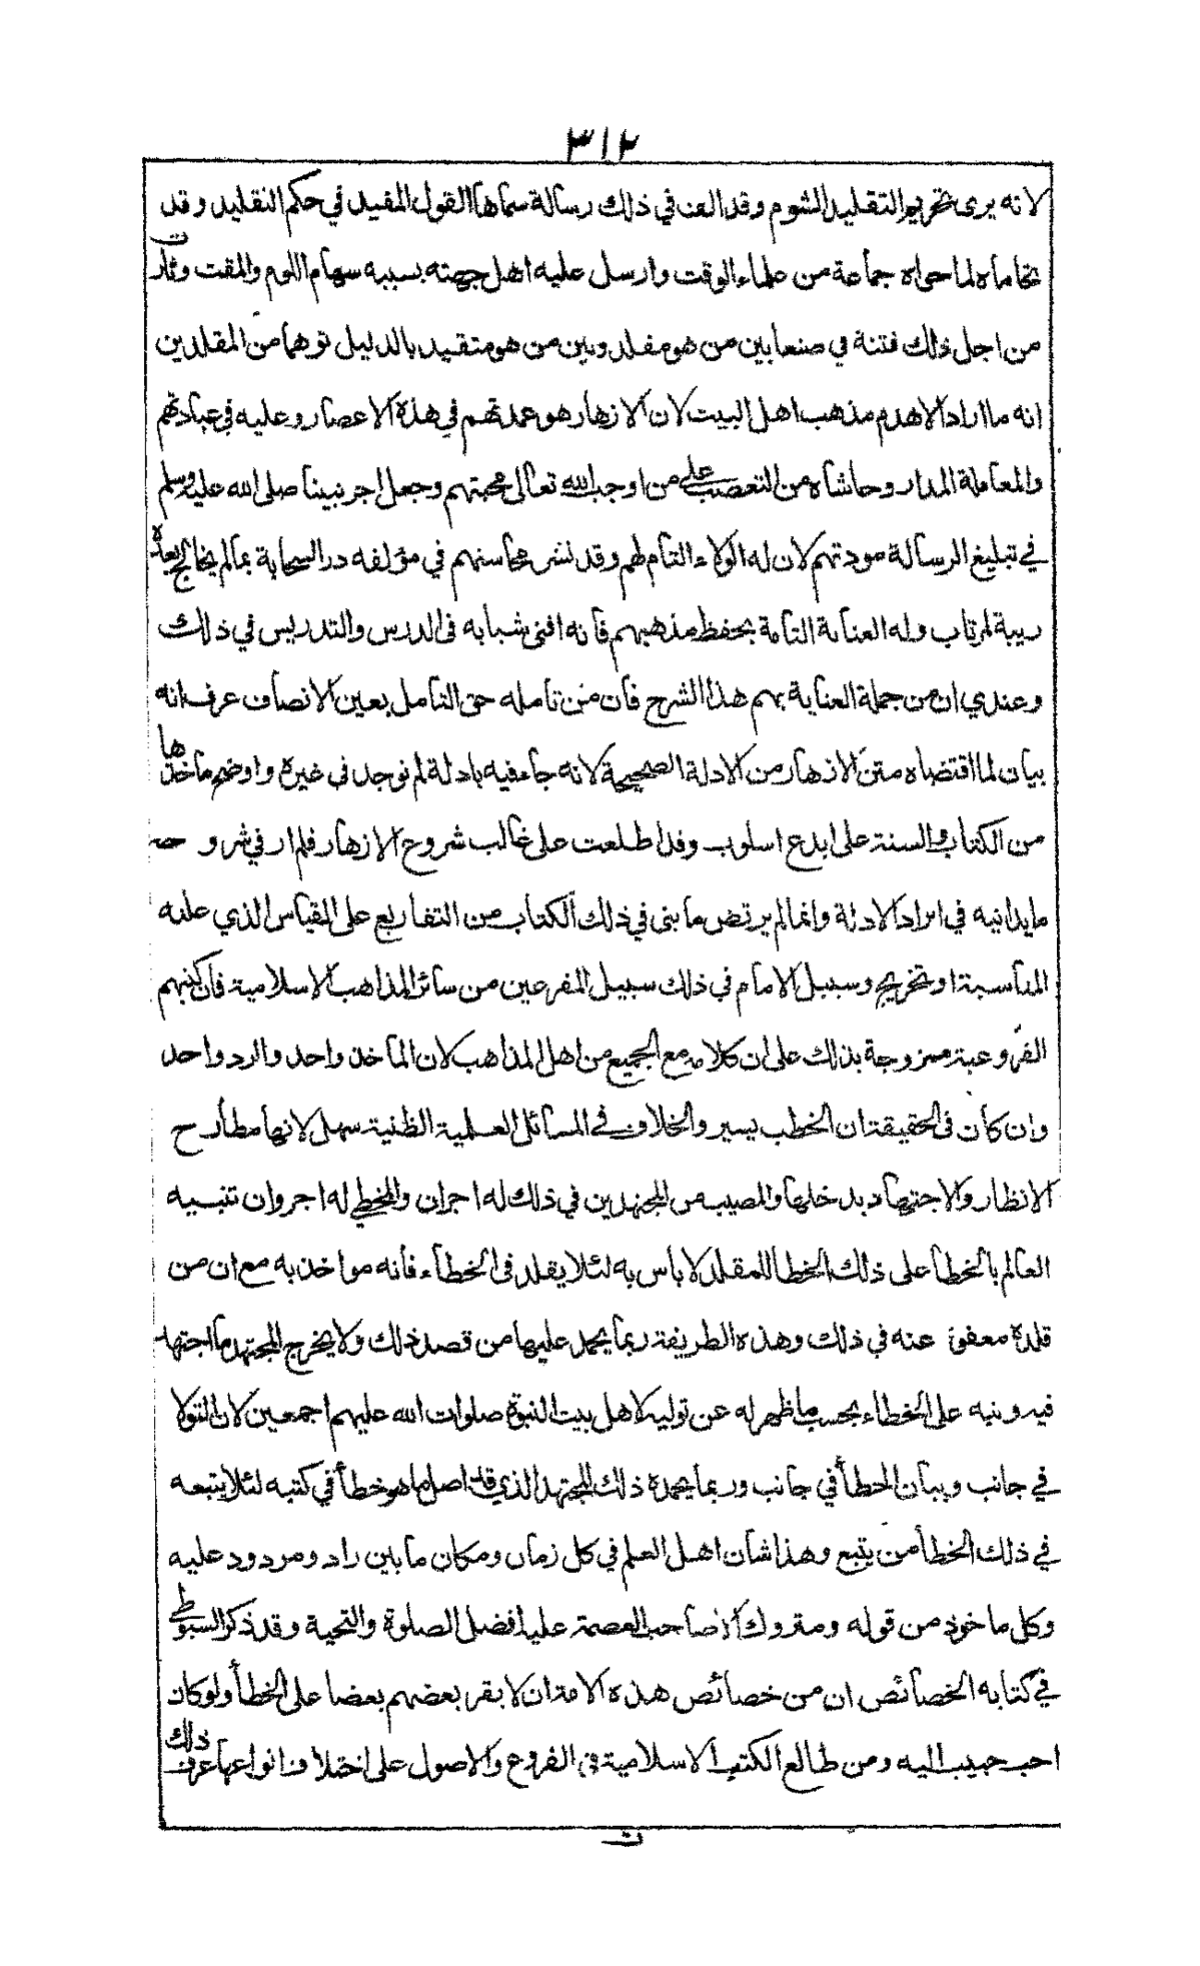 ٣١٢
لانه يرى تحريم التقليد الشوم وقد الف في ذلك رسالة سماها القول المفيد في حكم التقليد وقد
تحاماه لما حواه جماعة من علماء الوقت وارسل عليه اهل جهته بسببه سهام اللوم والمقت وثارت
من اجل ذلك فتنة في صنعا بين من هو مقلد وبين من هو متقيد بالدليل توهما من المقلدين
انه ما اراد الا هدم مذهب اهل البيت لان الازهار هو عمدتهم في هذه الاعصار وعليه في عبادتهم
والمعاملة المدار وحاشاه من التعصب على من اوجب الله تعالى محبتهم وجعل اجر نبينا صلى الله عليه وسلم
في تبليغ الرسالة مودتهم لان له الولاء التام لهم وقد نشر محاسنهم في مؤلفه در السحابة بما لم يخالج بعده
ريبة لمرتاب وله العناية التامة بحفظ مذهبهم فانه افنى شبابه في الدرس والتدريس في ذلك
وعندي ان من جملة العناية بهم هذا الشرح فان من تامله حق التامل بعين الانصاف عرف انه
بيان لما اقتضاه متن الازهار من الادلة الصحيحة لانه جاء فيه بادلة لم توجد في غيره واوضح ماخذها
من الكتاب والسنة على ابدع اسلوب وقد اطلعت على غالب شروح الازهار فلم ار في شروحه
ما يدانيه في ايراد الادلة وانما لم يرتض ما بنى في ذلك الكتاب من التفاريع على القياس الذي علته
المناسبة او تخريج وسبيل الامام في ذلك سبيل المفرعين من سائر المذاهب الاسلامية فان كتبهم
الفروعية ممزوجة بذلك على ان كلامه مع الجميع من اهل المذاهب لان الماخذ واحد والرد واحد
وان كان في الحقيقة ان الخطب يسير والخلاف في المسائل العلمية الظنية سهل لانها مطارح
الانظار والاجتهاد يدخلها والمصيب من المجتهدين في ذلك له اجران والمخطي له اجر وان تنبيه
العالم بالخطأ على ذلك الخطا للمقلد لا بأس به لئلا يقلد في الخطاء فانه مواخذ به مع ان من
قلده معفو عنه في ذلك وهذه الطريقة ربما يحمد عليها من قصد ذلك ولا يخرج المجتهد ما اجتهد
فيه ونبه على الخطاء بحسب ما ظهر له عن توليه لاهل بيت النبوة صلوات الله عليهم اجمعين لان التولا
في جانب وبيان الخطأ في جانب وربما يحمده ذلك المجتهد الذي قد اصل ما هو خطأ في كتبه لئلا يتبعه
في ذلك الخطأ من يتبع وهذا شان اهل العلم في كل زمان ومكان ما بين راد ومردود عليه
وكل ماخوذ من قوله ومتروك الا صاحب العصمة عليه افضل الصلوة والتحية وقد ذكر السيوطي
في كتابه الخصائص ان من خصائص هذه الامة ان لا يقر بعضهم بعضا على الخطأ ولو كان
احب حبيب اليه ومن طالع الكتب الاسلامية في الفروع والاصول على اختلاف انواعها عرف ذلك